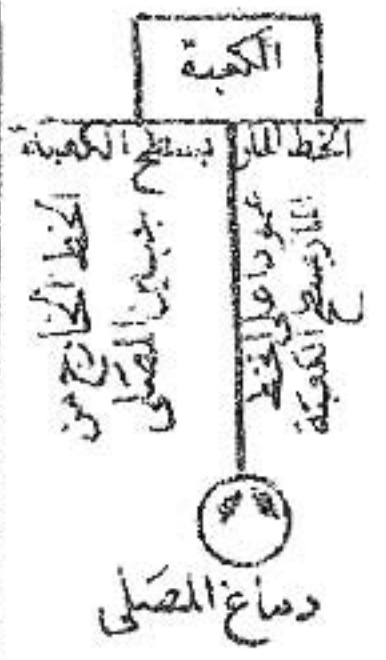 الكعبة
الخط المار بسطح الكعبة
الخط الخارج من
جبين المصلى
عمودا على الخط
المار بسطح الكعبة
دماغ المصَلى